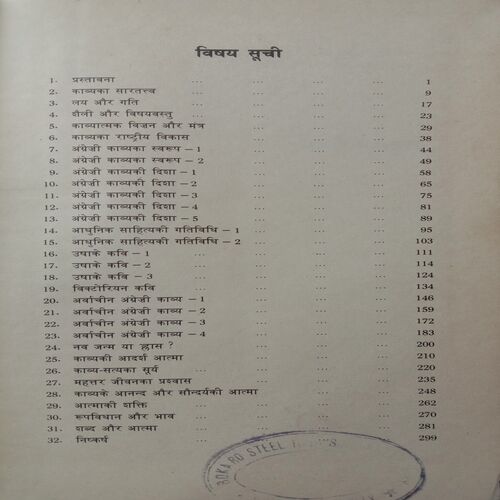 विषय सूची
1. प्रस्तावना ... ... ... ... 1
2. काव्यका सारतत्त्व ... ... ... ... 9
3. लय और गति ... ... ... ... 17
4. शैली और विषयवस्तु ... ... ... ... 23
5. काव्यात्मक विजन और मंत्र ... ... ... ... 29
6. काव्यका राष्ट्रीय विकास ... ... ... ... 38
7. अंग्रेजी काव्यका स्वरूप – 1 ... ... ... 44
8. अंग्रेजी काव्यका स्वरूप – 2 ... ... ... 49
9. अंग्रेजी काव्यकी दिशा – 1 ... ... ... 58
10. अंग्रेजी काव्यकी दिशा – 2 ... ... ... 65
11. अंग्रेजी काव्यकी दिशा – 3 ... ... ... 75
12. अंग्रेजी काव्यकी दिशा – 4 ... ... ... 81
13. अंग्रेजी काव्यकी दिशा – 5 ... ... ... 89
14. आधुनिक साहित्यकी गतिविधि – 1 ... ... ... 95
15. आधुनिक साहित्यकी गतिविधि – 2 ... ... ... 103
16. उषाके कवि – 1 ... ... ... ... 111
17. उषाके कवि – 2 ... ... ... ... 114
18. उषाके कवि – 3 ... ... ... ... 124
19. विक्टोरियन कवि ... ... ... ... 134
20. अर्वाचीन अंग्रेजी काव्य – 1 ... ... ... 146
21. अर्वाचीन अंग्रेजी काव्य – 2 ... ... ... 159
22. अर्वाचीन अंग्रेजी काव्य – 3 ... ... ... 172
23. अर्वाचीन अंग्रेजी काव्य – 4 ... ... ... 183
24. नव जन्म या ह्रास ? ... ... ... ... 200
25. काव्यकी आदर्श आत्मा ... ... ... ... 210
26. काव्य-सत्यका सूर्य ... ... ... ... 220
27. महत्तर जीवनका प्रश्वास ... ... ... ... 235
28. काव्यके आनन्द और सौन्दर्यकी आत्मा ... ... ... 248
29. आत्माकी शक्ति ... ... ... ... 262
30. रूपविधान और भाव ... ... ... ... 270
31. शब्द और आत्मा ... ... ... ... 281
32. निष्कर्ष ... ... ... ... 299
BOKARO STEEL